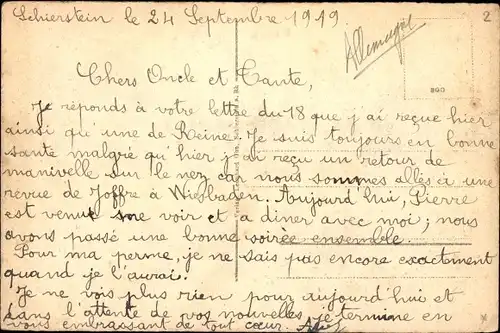 Schierstein le 24 Septembre 1919
Allemagne
2
Chers Oncle et Tante,
Je réponds à votre lettre du 18 que j'ai reçue hier
ainsi qu'une de Reine. Je suis toujours en bonne
santé malgré qu'hier j'ai reçu un retour de
manivelle sur le nez car nous sommes allés à une
revue de Joffre à Wiesbaden. Aujourd'hui, Pierre
est venu me voir et a diner avec moi; nous
avons passé une bonne soirée ensemble.
Pour ma perme, je ne sais pas encore exactement
quand je l'aurai.
Je ne vois plus rien pour aujourd'hui et
dans l'attente de vos nouvelles, je termine en
vous embrassant de tout cœur.